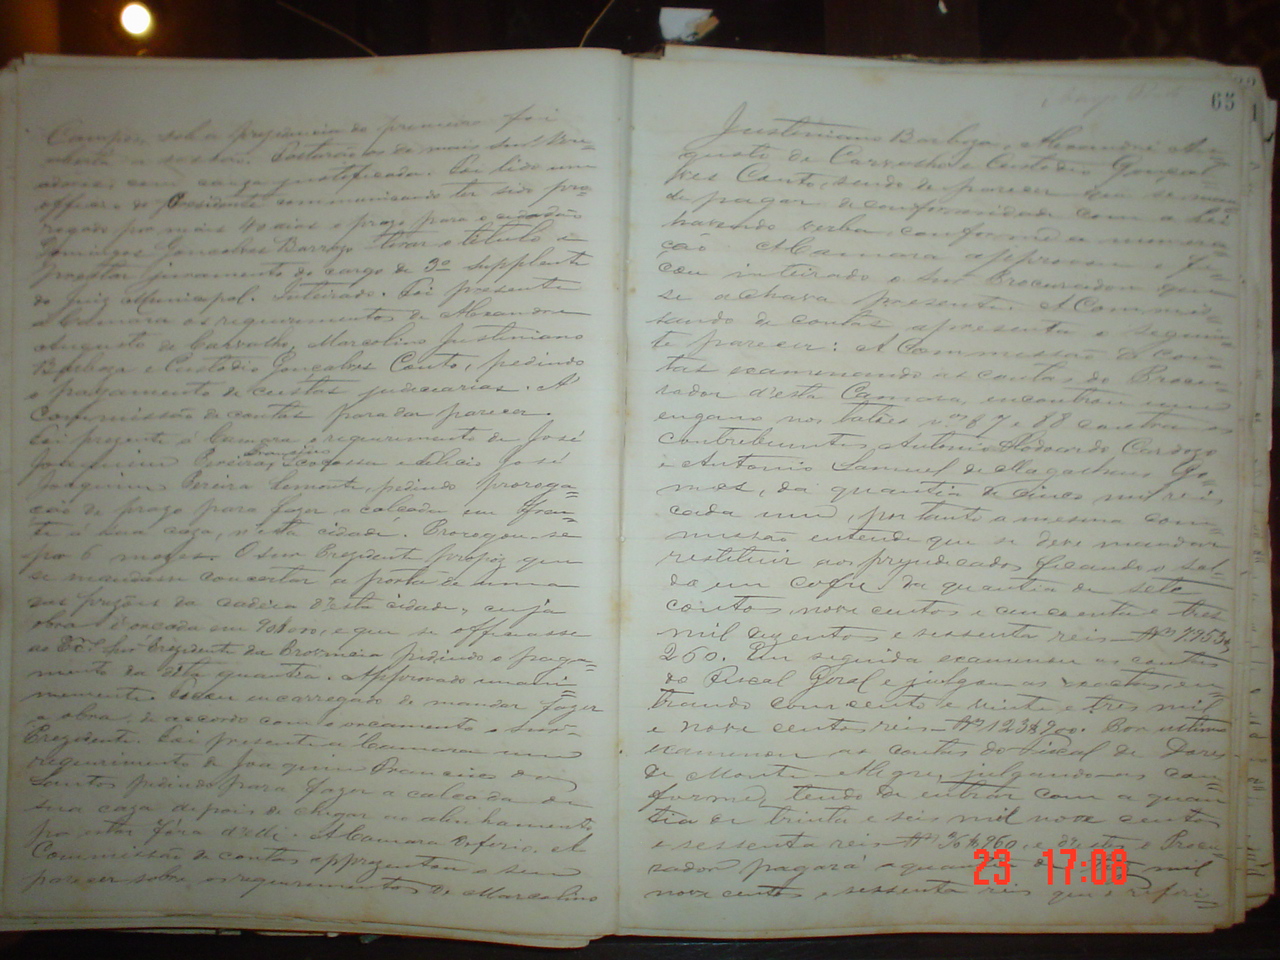 Campos, sob a presidencia do primeiro foi
aberta a sessão. Faltarão os de mais snr.s Vere=
adores, sem cauza justificada. Foi lido um
officio do Presidente communicando ter sido pro=
rogado por mais 40 dias o prazo para o cidadão
Domingos Gonçalves Barrozo tirar o titulo e
prestar juramento do cargo de 3º supplente
do Juiz Municipal. Inteirado. Foi presente
a Camara os requerimentos de Alexandre
Augusto de Carvalho, Marcolino Justiniano
Barboza e Custodio Gonçalves Couto, pedindo
o pagamento de custas judiciarias. A'
Commissão de contas para dar parecer.
Foi prezente á Camara o requerimento de José
Joaquim Pereira, e Felicio José
Joaquim Pereira, pedindo proroga=
ção de prazo para fazer a calçada em fren=
te á sua caza, n'esta cidade. Prorogou-se
por 6 mezes. O snr Prezidente propoz que
se mandasse concertar a porta de uma
das prizões da cadeia d'esta cidade, cuja
obra é orçada em e que se officiasse
ao Ex.mo Snr Prezidente da Provincia pedindo o paga=
mento da dita quantia. Approvado unani=
memente. encarregado de mandar fazer
a obra, de accordo com o orçamento o snr=
Prezidente. Foi prezente á Camara um
requerimento de Joaquim Francisco dos
Santos pedindo para fazer a calçada de
sua caza depois de chegar ao alinhamento
por estar fóra d'elle. A Camara deferio. A
Commissão de contas apprezentou o seu
parecer sobre os requerimentos de Marcolino
65
Justiniano Barboza, Alexandre Au=
gusto de Carvalho e Custodio Gonçal=
ves Couto, sendo de parecer que se man
de pagar de conformidade com a lei
havendo verba, conforme a
ção. A Camara approvou e fi=
cou inteirado o snr Procurador que
se achava presente. A Commis=
são de contas apresenta o seguin=
te parecer: A Commissão de con=
tas examinando as contas do Procu=
rador d'esta Camara, encontrou um
engano nos talões n.os 87 e 88 contra os
contribuintes Antonio Cardozo
e Antonio Samuel de Magalhães Go=
mes, da quantia de cinco mil reis,
cada um, por tanto a mesma com=
missão entende que se deve mandar
restituir aos prejudicados ficando o sal=
do em cofre da quantia de sete
contos, nove centos e cincoenta e tres
mil duzentos e sessenta reis — 7953$
260. Em seguida examinou as contas
do Fiscal Geral e julgou as exactas, en=
trando com cento e vinte e tres mil
e nove centos reis — 123$900. Por ultimo
examinou as contas do fiscal de Dores
de Monte-Alegre, julgando-as con=
formes, tendo de entrar com a quan=
tia de trinta e seis mil nove centos
e sessenta reis 36$960, e o Procu=
rador pagará a quantia de mil
nove centos e sessenta reis que refere=
23 17:08